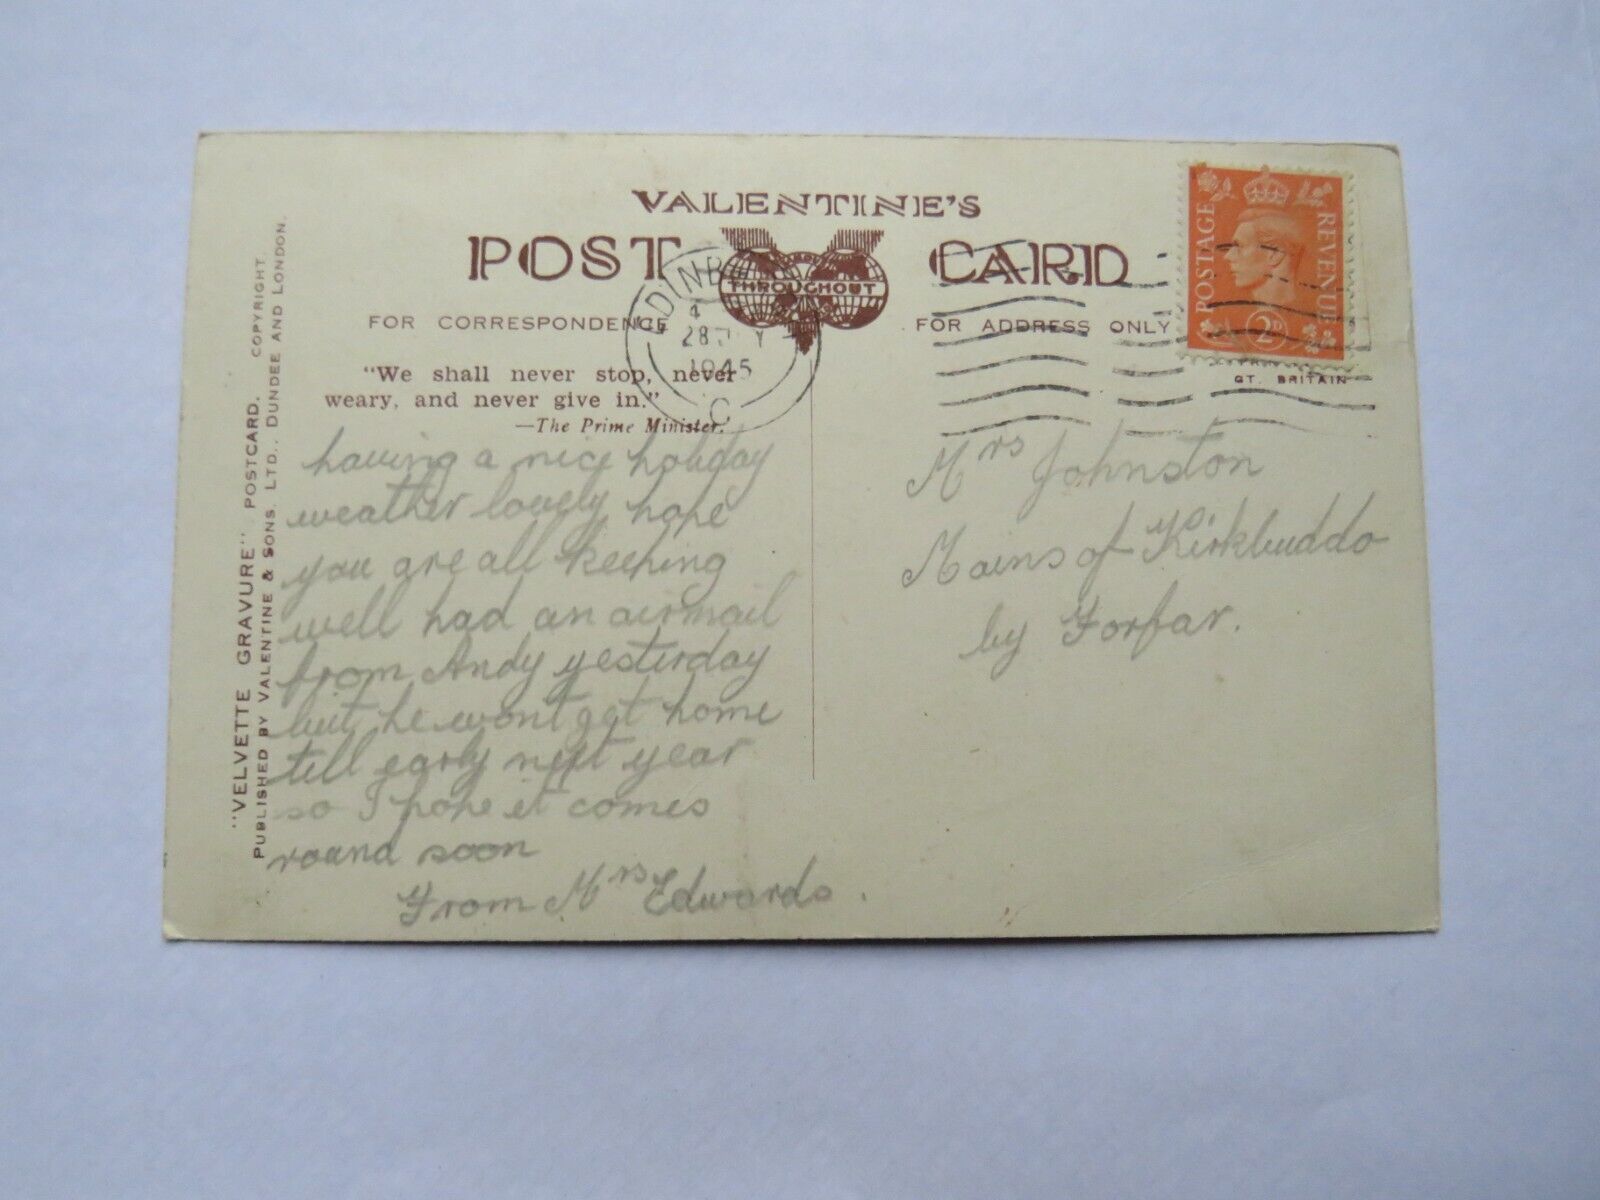 VALENTINE'S
POST CARD
THROUGHOUT
FOR CORRESPONDENCE
FOR ADDRESS ONLY
"We shall never stop, never
weary, and never give in."
—The Prime Minister.
having a nice holiday
weather lovely hope
you are all keeping
well had an airmail
from Andy yesterday
but he wont get home
till early next year
so I hope it comes
round soon
From Mrs Edwards.
EDINBURGH
28 1945
C
POSTAGE REVENUE
2D
GT. BRITAIN
Mrs Johnston
Mains of Kirkbuddo
by Forfar.
"VELVETTE GRAVURE" POSTCARD. COPYRIGHT.
PUBLISHED BY VALENTINE & SONS, LTD., DUNDEE AND LONDON.